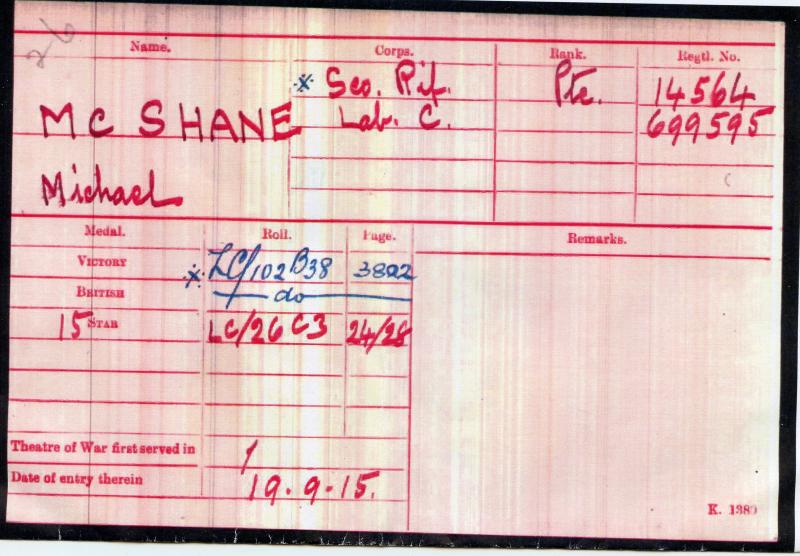 26
Name. Corps. Rank. Regtl. No.
* Sco. Rif. Pte. 14564
MC SHANE Lab. C. 699595
Michael
Medal. Roll. Page. Remarks.
VICTORY * LC/102 B38 3802
BRITISH — do —
15 STAR LC/26 C3 24/28
Theatre of War first served in 1
Date of entry therein 19.9.15.
K. 1380